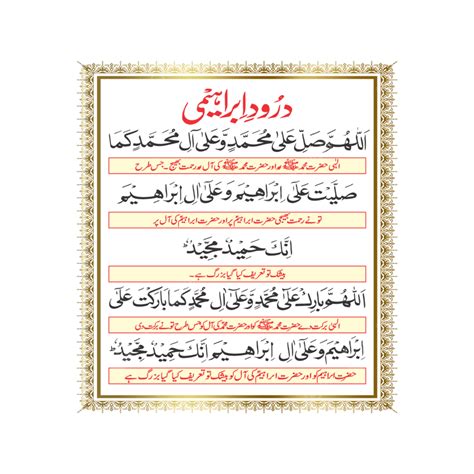 درودِ ابراہیمی
اَللّٰهُمَّ صَلِّ عَلٰى مُحَمَّدٍ وَّعَلٰٓى اٰلِ مُحَمَّدٍ كَمَا
الٰہی حضرت محمد ﷺ اور حضرت محمد ﷺ کی آل پر رحمت بھیج۔ جس طرح
صَلَّيْتَ عَلٰٓى اِبْرَاهِيْمَ وَعَلٰٓى اٰلِ اِبْرَاهِيْمَ
تو نے رحمت بھیجی حضرت ابراہیم پر اور حضرت ابراہیم کی آل پر
اِنَّكَ حَمِيْدٌ مَّجِيْدٌ
بیشک تو تعریف کیا گیا بزرگ ہے۔
اَللّٰهُمَّ بَارِكْ عَلٰى مُحَمَّدٍ وَّعَلٰٓى اٰلِ مُحَمَّدٍ كَمَا بَارَكْتَ عَلٰٓى
الٰہی برکت دے حضرت محمد ﷺ کو اور حضرت محمد کی آل کو جس طرح تو نے برکت دی
اِبْرَاهِيْمَ وَعَلٰٓى اٰلِ اِبْرَاهِيْمَ اِنَّكَ حَمِيْدٌ مَّجِيْدٌ
حضرت ابراہیم کو اور حضرت ابراہیم کی آل کو بیشک تو تعریف کیا گیا بزرگ ہے